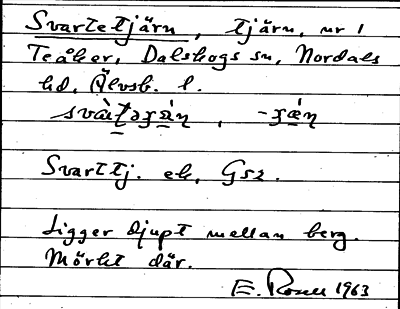 Svartetjärn, tjärn, nr 1
Teåker, Dalskogs sn, Nordals
hd, Älvsb. l.
Svarttj. ek, Gsz.
Ligger djupt mellan berg.
Mörkt där.
E. 1963